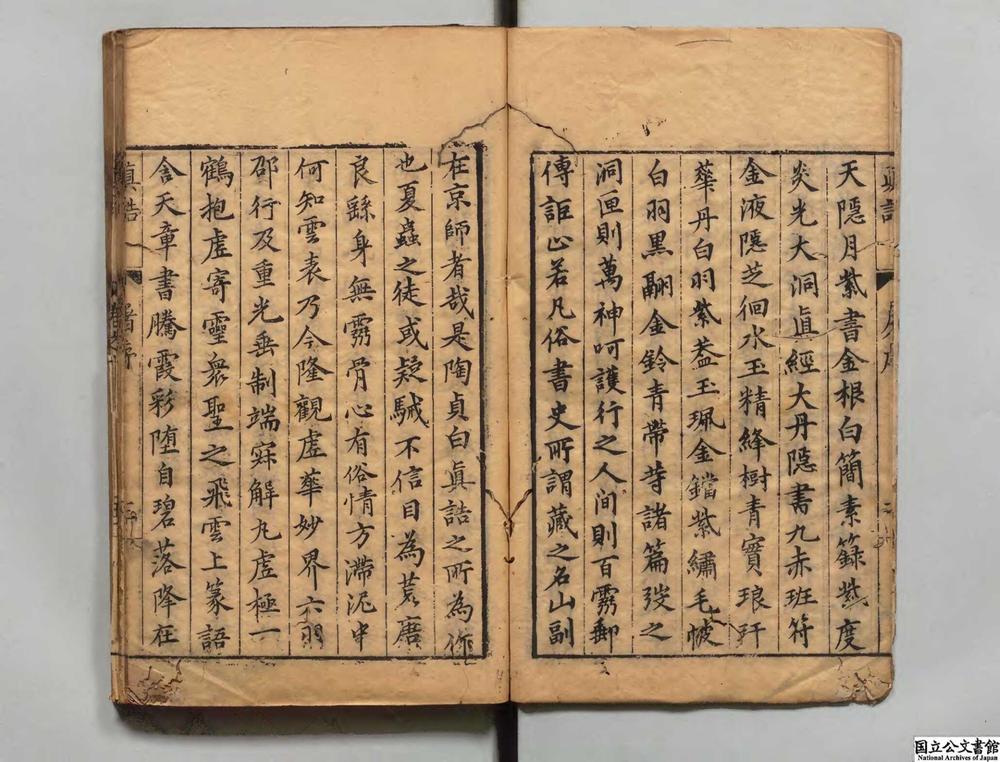 天隱月紫書金根白簡素籙紫度
炎光大洞眞經大丹隱書九赤班符
金液隱芝徊水玉精絳樹青實琅玕
華丹白羽紫蓋玉珮金鐺紫繡毛帔
白羽黑翮金鈴青帶等諸篇發之
洞匣則萬神呵護行之人间則百靈郵
傳詎止若凡俗書史所謂藏之名山副
在京師者哉是陶貞白眞誥之所為作
也夏蟲之徒或疑駴不信目為荒唐
良繇身無靈骨心有俗情方滯泥中
何知雲表乃今隆觀虛華妙界六羽
邵行及重光垂制端寀解九虛極一
鶴抱虛寄靈衆聖之飛雲上篆語
含天章書騰霞彩墮自碧落降在
眞誥
国立公文書館
National Archives of Japan